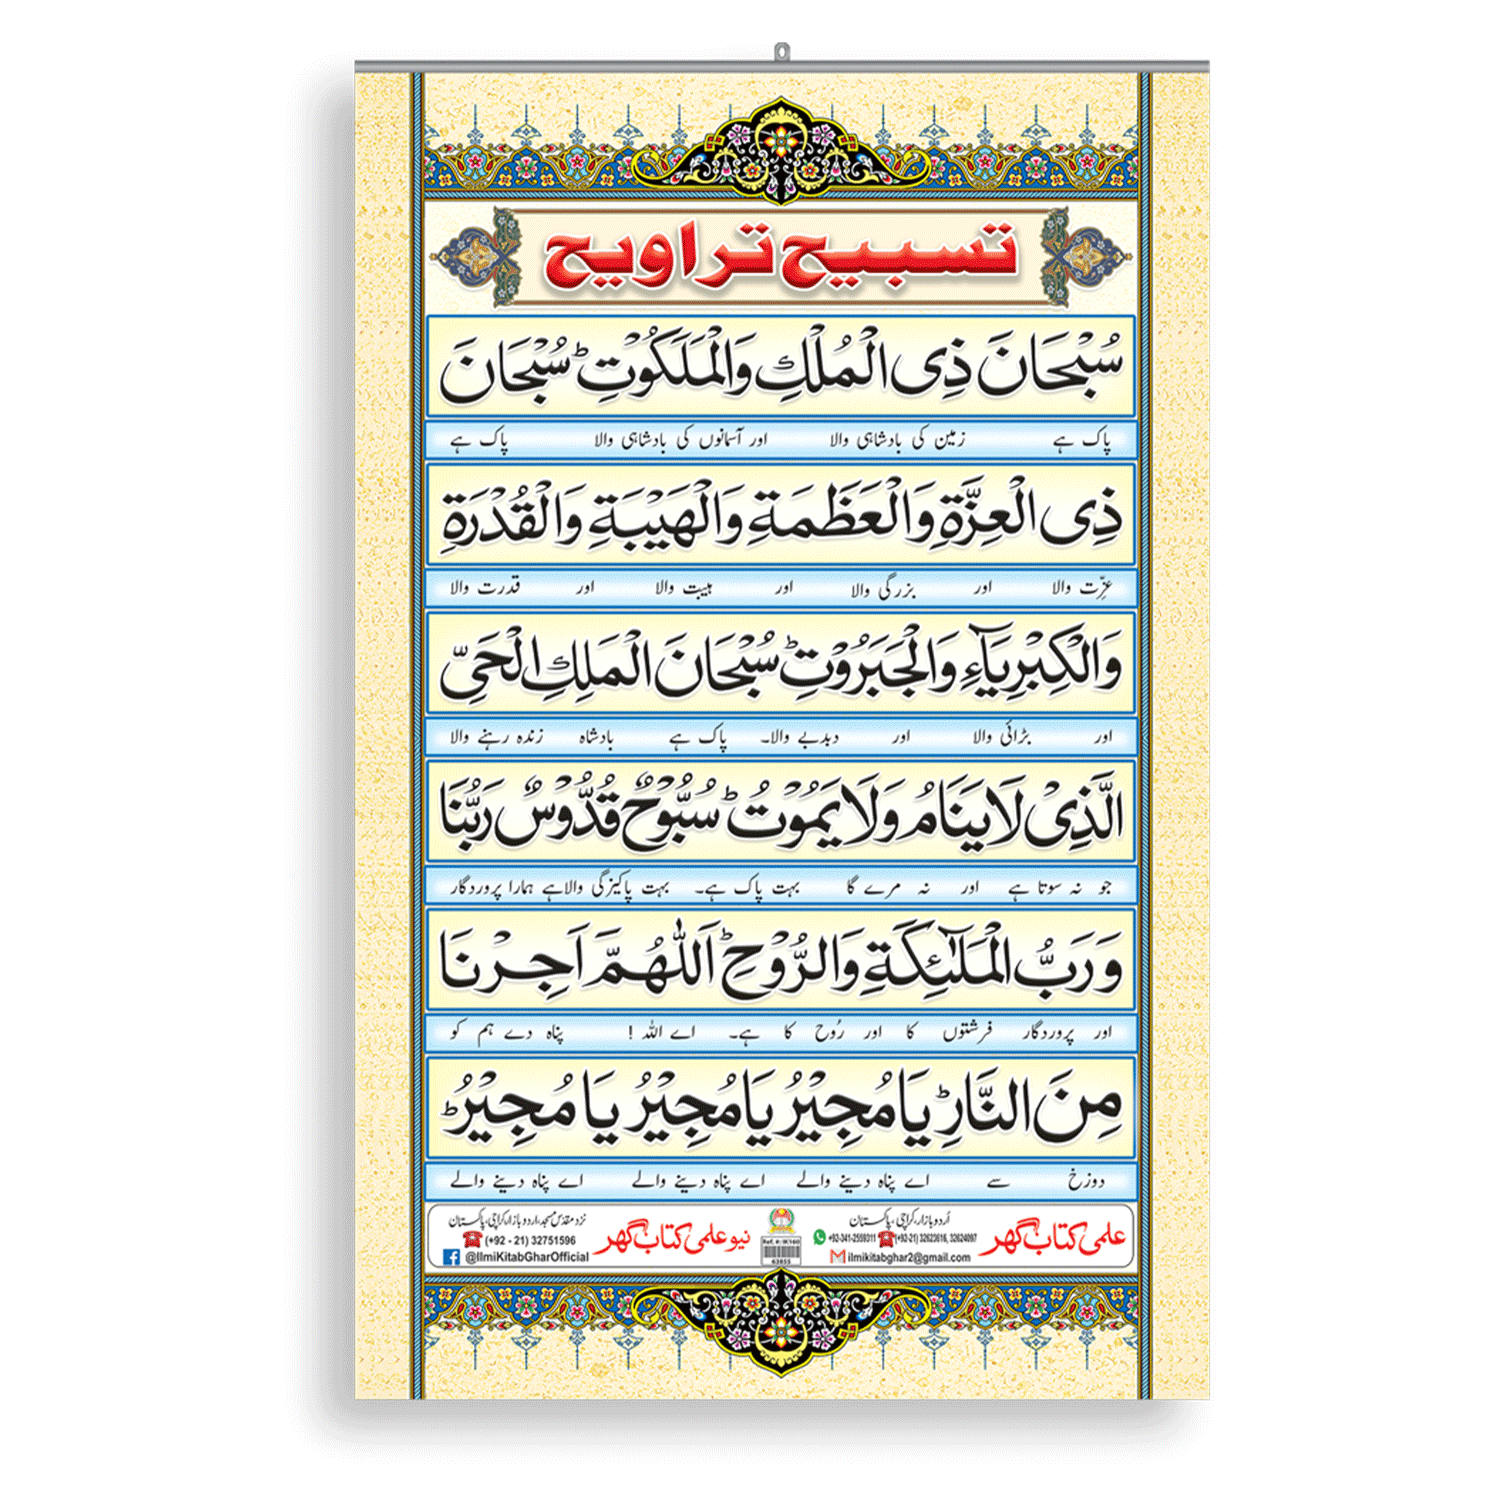 تسبیح تراویح
سُبْحَانَ ذِی الْمُلْكِ وَالْمَلَكُوْتِ ؕ سُبْحَانَ
پاک ہے زمین کی بادشاہی والا اور آسمانوں کی بادشاہی والا پاک ہے
ذِی الْعِزَّةِ وَالْعَظَمَةِ وَالْهَيْبَةِ وَالْقُدْرَةِ
عزّت والا اور بزرگی والا اور ہیبت والا اور قدرت والا
وَالْكِبْرِيَآءِ وَالْجَبَرُوْتِ ؕ سُبْحَانَ الْمَلِكِ الْحَيِّ
اور بڑائی والا اور دبدبے والا۔ پاک ہے بادشاہ زندہ رہنے والا
الَّذِیْ لَا يَنَامُ وَلَا يَمُوْتُ ؕ سُبُّوْحٌ قُدُّوْسٌ رَبُّنَا
جو نہ سوتا ہے اور نہ مرے گا بہت پاک ہے۔ بہت پاکیزگی والا ہے ہمارا پروردگار
وَرَبُّ الْمَلٰٓئِكَةِ وَالرُّوْحِ ؕ اَللّٰهُمَّ اَجِرْنَا
اور پروردگار فرشتوں کا اور رُوح کا ہے۔ اے اللہ ! پناہ دے ہم کو
مِنَ النَّارِ ؕ يَا مُجِيْرُ يَا مُجِيْرُ يَا مُجِيْرُ ؕ
دوزخ سے اے پناہ دینے والے اے پناہ دینے والے اے پناہ دینے والے
علمی کتاب گھر
اُردو بازار، کراچی، پاکستان
+92-341-2559311 (+92-21) 32623616, 32624097
ilmikitabghar2@gmail.com
Ref. #: IK160
63855
نیو علمی کتاب گھر
نزد مقدّس مسجد، اردو بازار، کراچی، پاکستان
(+92 - 21) 32751596
@IlmiKitabGharOfficial